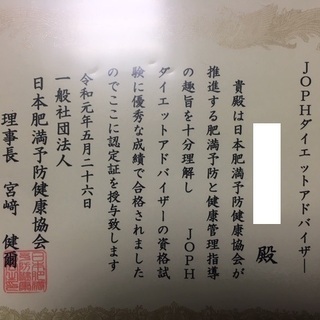 JOPHダイエットアドバイザー
殿
貴殿は日本肥満予防健康協会が
推進する肥満予防と健康管理指導
の趣旨を十分理解し JOPH
ダイエットアドバイザーの資格試
験に優秀な成績で合格されました
のでここに認定証を授与致します
令和元年五月二十六日
一般社団法人
日本肥満予防健康協会
理事長 宮﨑 健爾